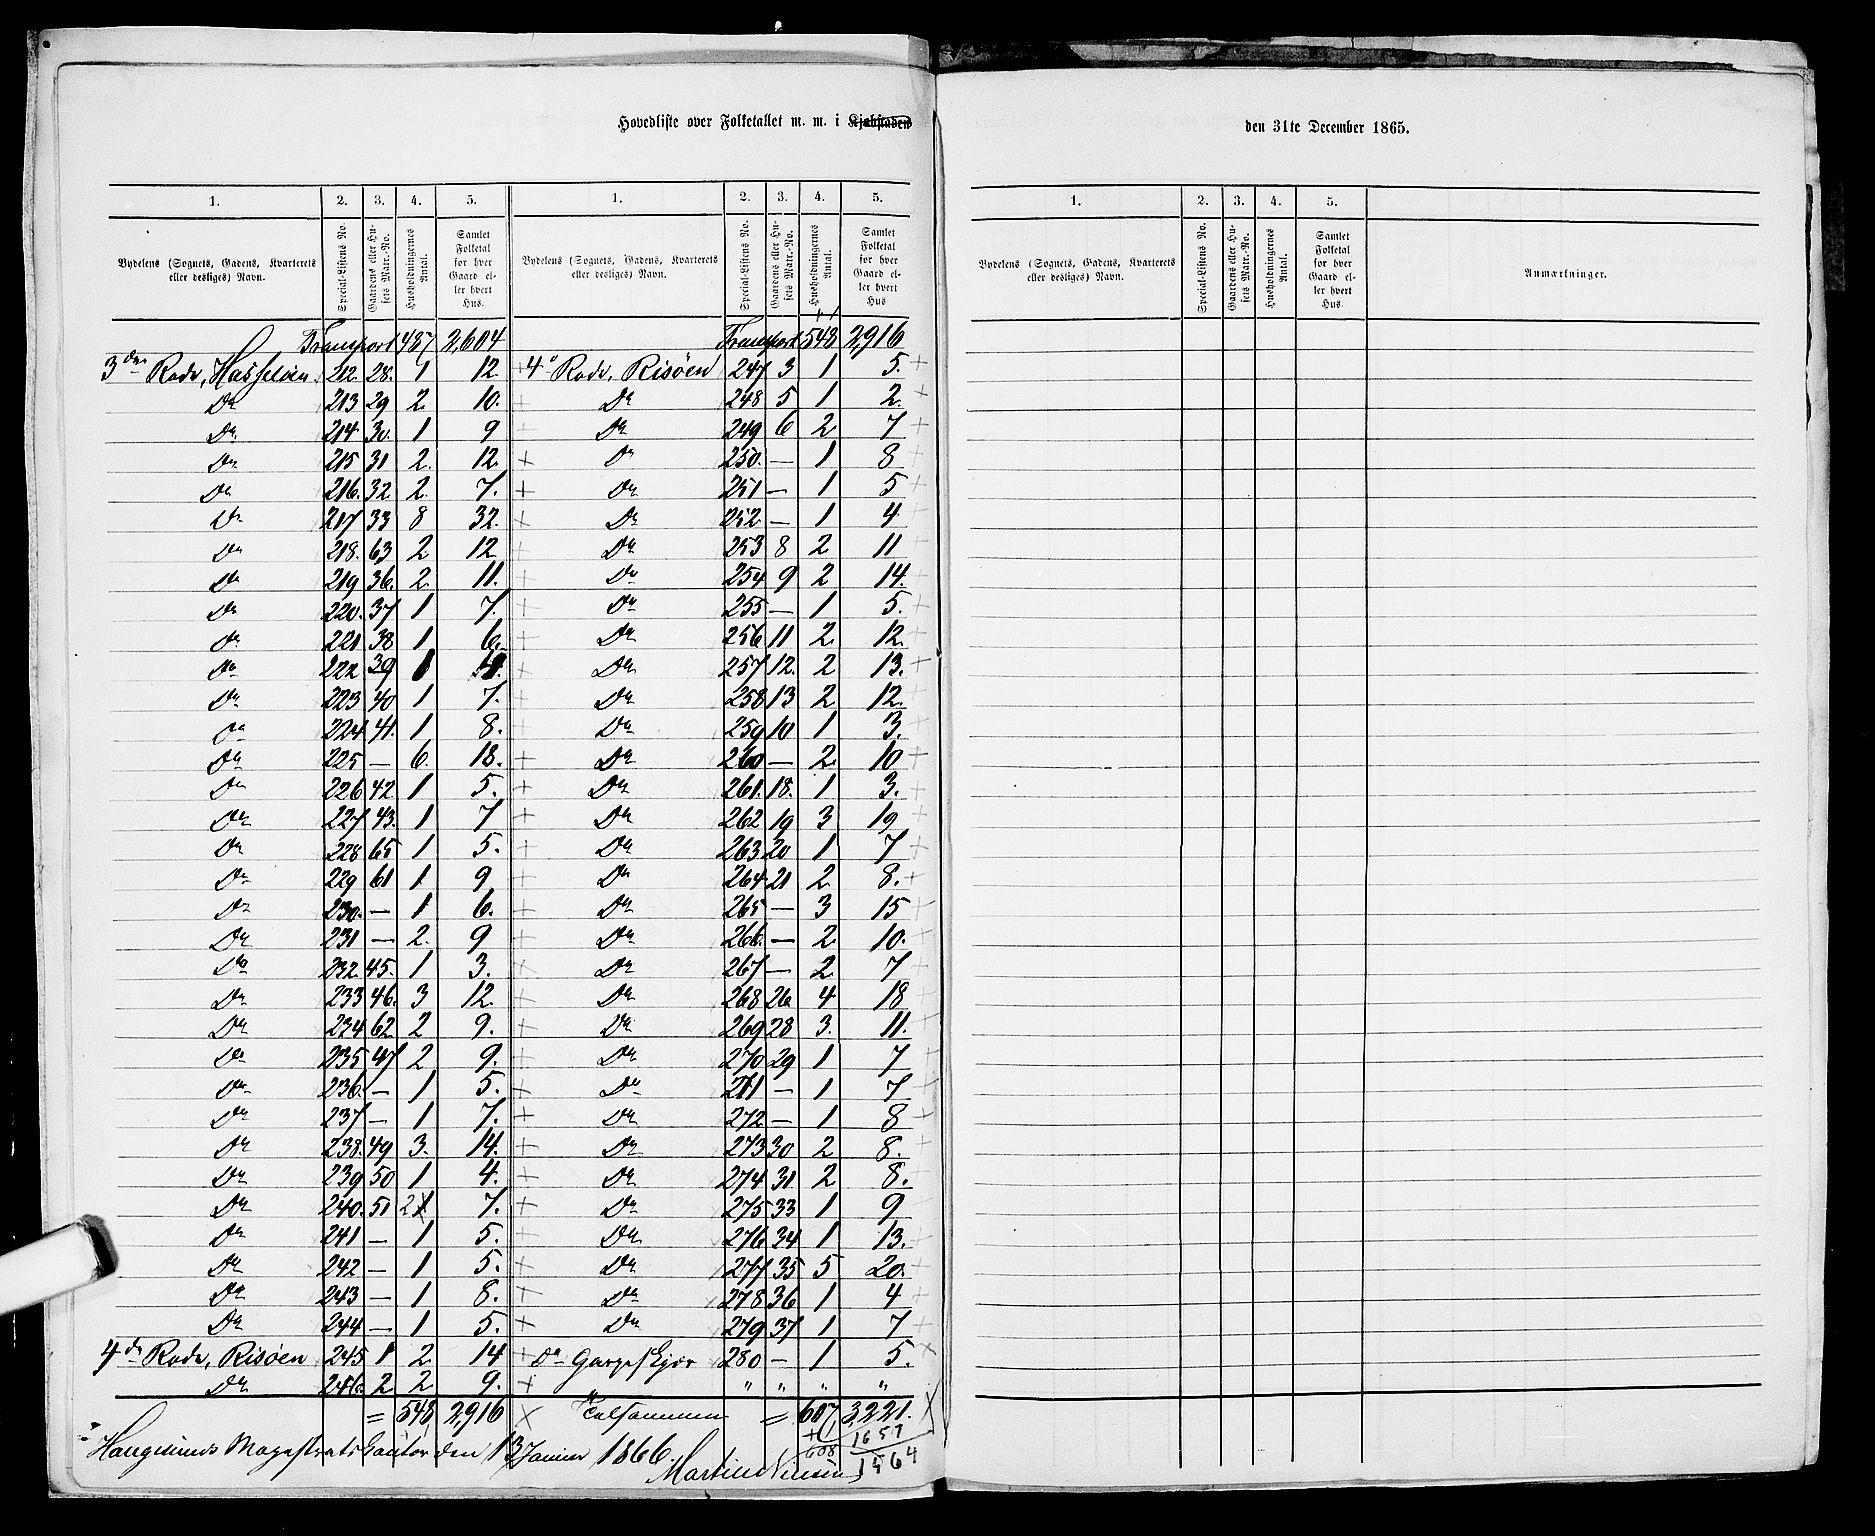 Hovedliste over Folketallet m. m. i Kjøbstaden
den 31te December 1865.
1. 2. 3. 4. 5. 1. 2. 3. 4. 5.
Bydelens (Sognets, Gadens, Kvarterets eller desliges) Navn. Special-Listens No. Gaardens eller Husets Matr.-No. Husholdningernes Antal. Samlet Folketal for hver Gaard eller hvert Hus. Bydelens (Sognets, Gadens, Kvarterets eller desliges) Navn. Special-Listens No. Gaardens eller Husets Matr.-No. Husholdningernes Antal. Samlet Folketal for hver Gaard eller hvert Hus
Transport 487 2,604 Transport 548 2,916
3die Rode, Hasseløen 212. 28. 1 12. + 4de Rode, Risøen 247 3 1 5. +
Do 213 29 2. 10. Do 248 5 1 2. +
Do 214 30. 1 9 Do 249 6 2 7 +
Do 215 31 2. 12. + Do 250. — 1 8
Do 216. 32 2. 7. + Do 251 — 1 5
Do 217 33 8 32. + Do 252 — 1 4
Do 218. 63 2 12 Do 253 8 2 11
Do 219 36. 2. 11. Do 254 9 2 14.
Do 220. 37 1 7. Do 255 — 1 5.
Do 221 38 1 6. Do 256 11 2 12.
Do 222 39 Do 257 12. 2 13. +
Do 223 40 1 7. Do 258 13 2 12.
Do 224 41. 1 8. Do 259 10 1 3.
Do 225 — 6. 18. + Do 260 — 2. 10 +
Do 226 42. 1 5. + Do 261. 18. 1 3. +
Do 227 43. 1 7 + Do 262 19 3 19
Do 228 65 1 5. + Do 263 20 1 7 +
Do 229 61 1 9 Do 264 21 2 8. +
Do 230. — 1 6. + Do 265 — 3 15
Do 231 — 2. 9 Do 266. — 2 10.
Do 232. 45. 1 3. Do 267 — 2 7
Do 233 46. 3 12. Do 268 26 4 18
Do 234 62 2 9. Do 269 28 3. 11.
Do 235 47 2 9. Do 270 29 1 7
Do 236. — 1 5. Do 271 — 1 7
Do 237 — 1 7. + Do 272 — 1 8
Do 238. 49 3. 14. + Do 273 30 2 8.
Do 239 50 1 4. Do 274 31 2 8.
Do 240. 51 2 7. + Do 275 33 1 9
Do 241 — 1 5. + Do 276 34 1 13.
Do 242 — 1 5. + Do 277 35 5 20.
Do 243 — 1 8. + Do 278 36 1 4
Do 244 — 1 5. + Do 279 37 1 7
4de Rode, Risøen 245 1 2. 14 + Do 280 — 1 5.
Do 246. 2 2 9. + " " " "
= 548 2,916 Tilsammen = 607 3,221.
Haugesunds Magistratskontor den 13 Januar 1866.
+ 1
608
1657
1564
Martin
1. 2. 3. 4. 5.
Bydelens (Sognets, Gadens, Kvarterets eller desliges) Navn. Special-Listens No. Gaardens eller Husets Matr.-No. Husholdningernes Antal. Samlet Folketal for hver Gaard eller hvert Hus. Anmærkninger.